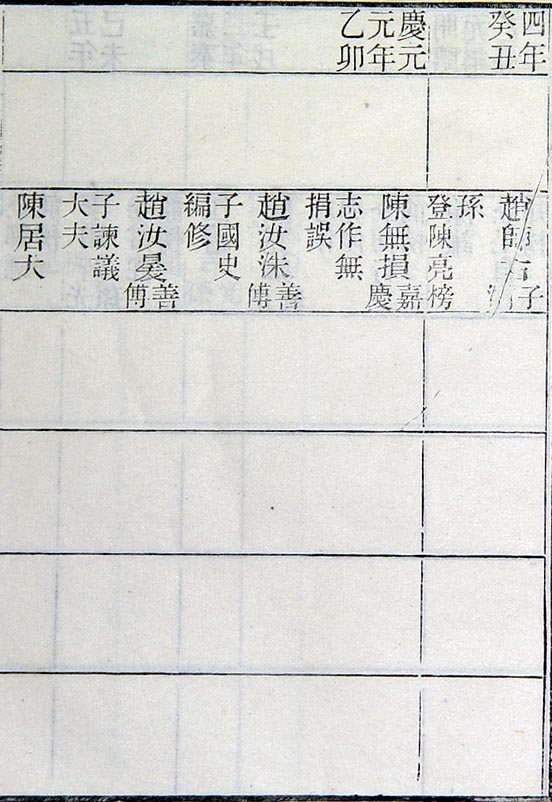 四年
癸丑
慶元
元年
乙卯
趙 子
孫
登陳亮榜
陳無損嘉慶
志作無
捐誤
趙汝洙善傅
子國史
編修
趙汝 善傅
子諫議
大夫
陳居大